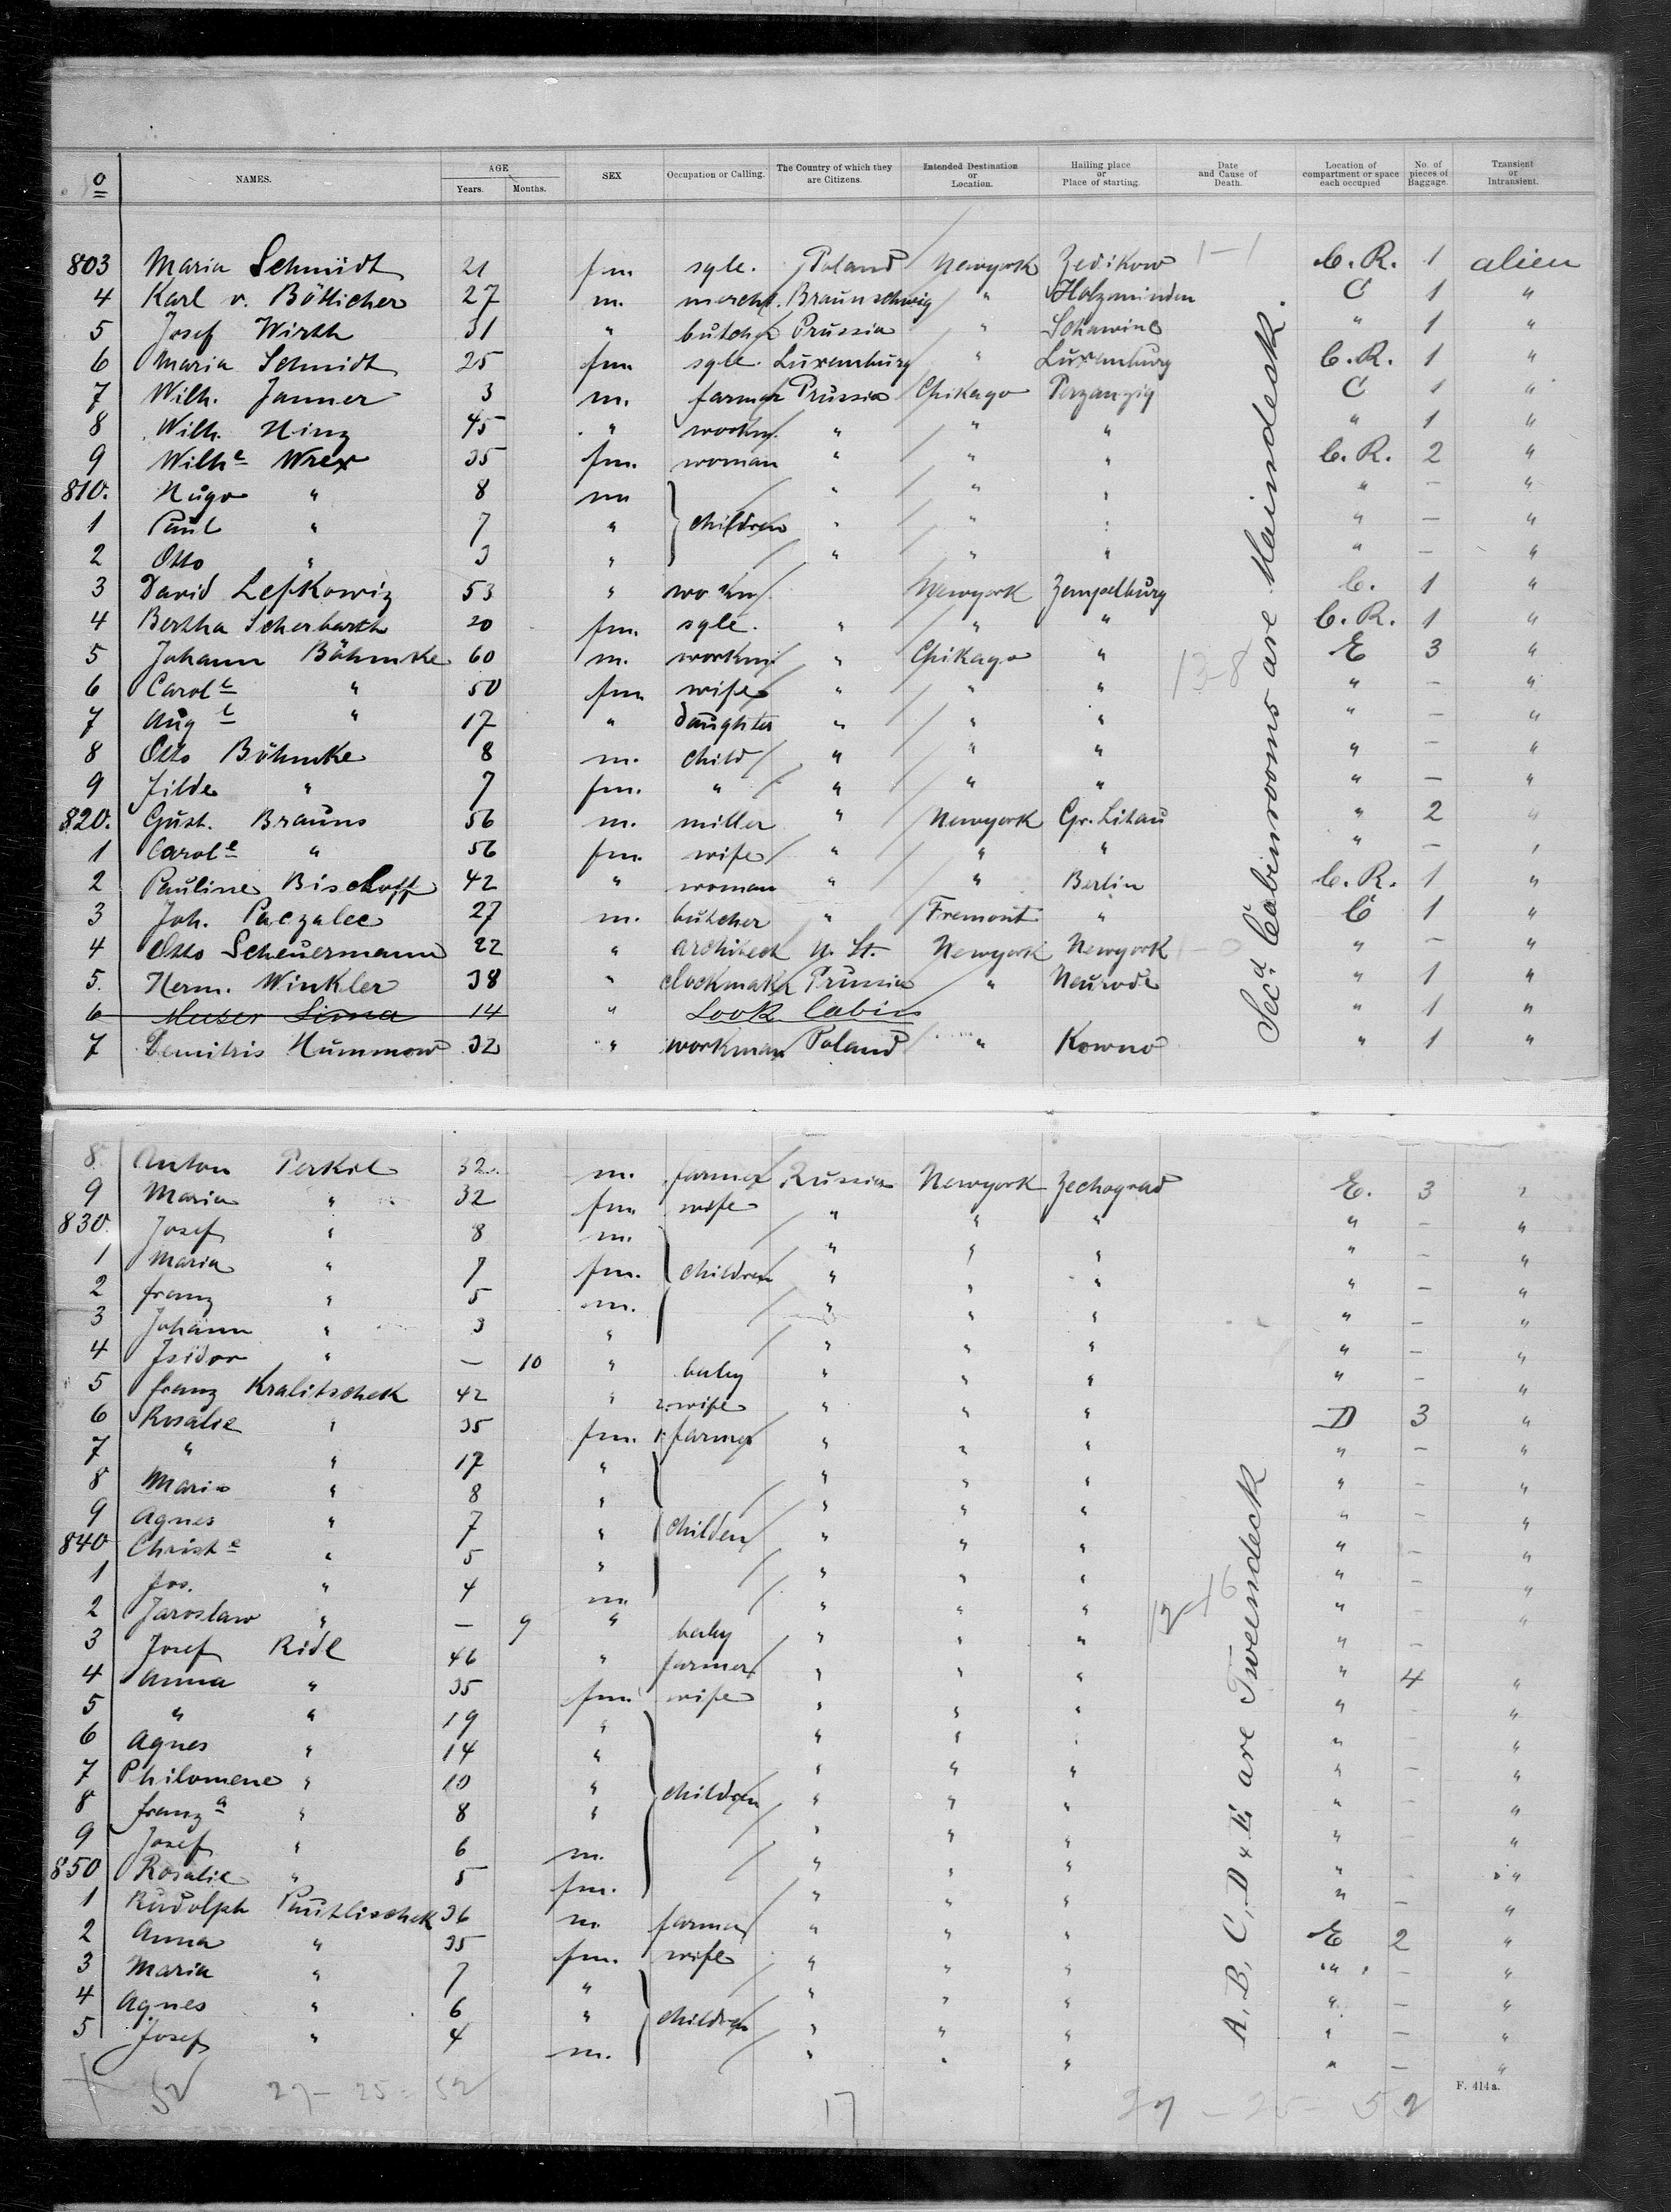 o NAMES. AGE Years. Months. SEX Occupation or Calling. The Country of which they are Citizens. Intended Destination or Location. Hailing place or Place of starting. Date and Cause of Death. Location of compartment or space each occupied No. of pieces of Baggage. Transient or Intransient.
803 Maria Schmidt 21 fm. sgle. Poland Newyork Zedikow 1-1 C. R. 1 alien
4 Karl v. Bötticher 27 m. mercht. Braunschweig " Holzminden C 1 "
5 Josef Wirth 31 " butcher Prussia " " 1 "
6 Maria Schmidt 25 fm. sgle. Luxemburg " Luxemburg C. R. 1 "
7 Wilh. Janner 3 m. farmer Prussia Chikago Perzanzig C 1 "
8 Wilh. Hinz 45 " workm. " " " " 1 "
9 Wilhe Wrex 35 fm. woman " " " C. R. 2 "
810. Hugo " 8 m " " " " - "
1 Paul " 7 " children " " " " - "
2 Otto " 3 " " " " " - "
3 David Lefkowiz 53 " workm Newyork Zempelburg C. 1 "
4 Bertha Scherbarth 20 fm. sgle. " " " C. R. 1 "
5 Johann Böhmke 60 m. workm. " Chikago " 13-8 E 3 "
6 Carole " 50 fm. wife " " " " - "
7 Auge " 17 " daughter " " " " - "
8 Otto Böhmke 8 m. child " " " " - "
9 Jilde " 7 fm. " " " " " - "
820. Gust. Brauns 56 m. miller " Newyork Gr. Litau " 2 "
1 Carole " 56 fm. wife " " " " - "
2 Pauline Bischoff 42 " woman " " Berlin C. R. 1 "
3 Joh. Paczalec 27 m. butcher " Fremont " C 1 "
4 Otto Scheuermann 22 " architect U. St. Newyork Newyork 1-0 " - "
5. Herm. Winkler 38 " clockmaker Prussia " Neurode " 1 "
6 Meeser Sima 14 " Look Cabin " 1 "
7 Demitris Hummow 32 " workman Poland " Kowno " 1 "
Secd. Cabinrooms are Maindeck.
8 Anton Perkil 32 m. farmer Russia Newyork Zechograd E. 3 "
9 Maria " 32 fm. wife " " " " - "
830. Josef " 8 m. " " " " - "
1 Maria " 7 fm. children " " " " - "
2 franz " 5 m. " " " " - "
3 Johann " 3 " " " " " - "
4 Isidor " - 10 " baby " " " " - "
5 franz Kralitschek 42 " 2. wife " " " D 3 "
6 Rosalie " 35 fm. 1. farmer " " " " - "
7 " " 17 " " " " " - "
8 Maria " 8 " " " " " - "
9 Agnes " 7 " children " " " " - "
840 Christe " 5 " " " " " - "
1 Jos. " 4 m " " " " - "
2 Jaroslaw " - 9 " baby " " " 12-16 " -
3 Josef Ridl 46 " farmer " " " " 4 "
4 Anna " 35 fm. wife " " " " - "
5 " " 19 " " " " " - "
6 Agnes " 14 " " " " " - "
7 Philomene " 10 " children " " " " - "
8 franza " 8 " " " " " - "
9 Josef " 6 m. " " " " - "
850 Rosalie " 5 fm. " " " " - "
1 Rudolph Pautlischek 36 m farmer " " " E 2 "
2 Anna " 35 fm. wife " " " " - "
3 Maria " 7 " " " " " - "
4 Agnes " 6 " children " " " " - "
5 Josef " 4 m. " " " " - "
A, B, C, D & E are Tweendeck
F. 414a.
52 27 - 25 = 52 17 27 - 25 - 52